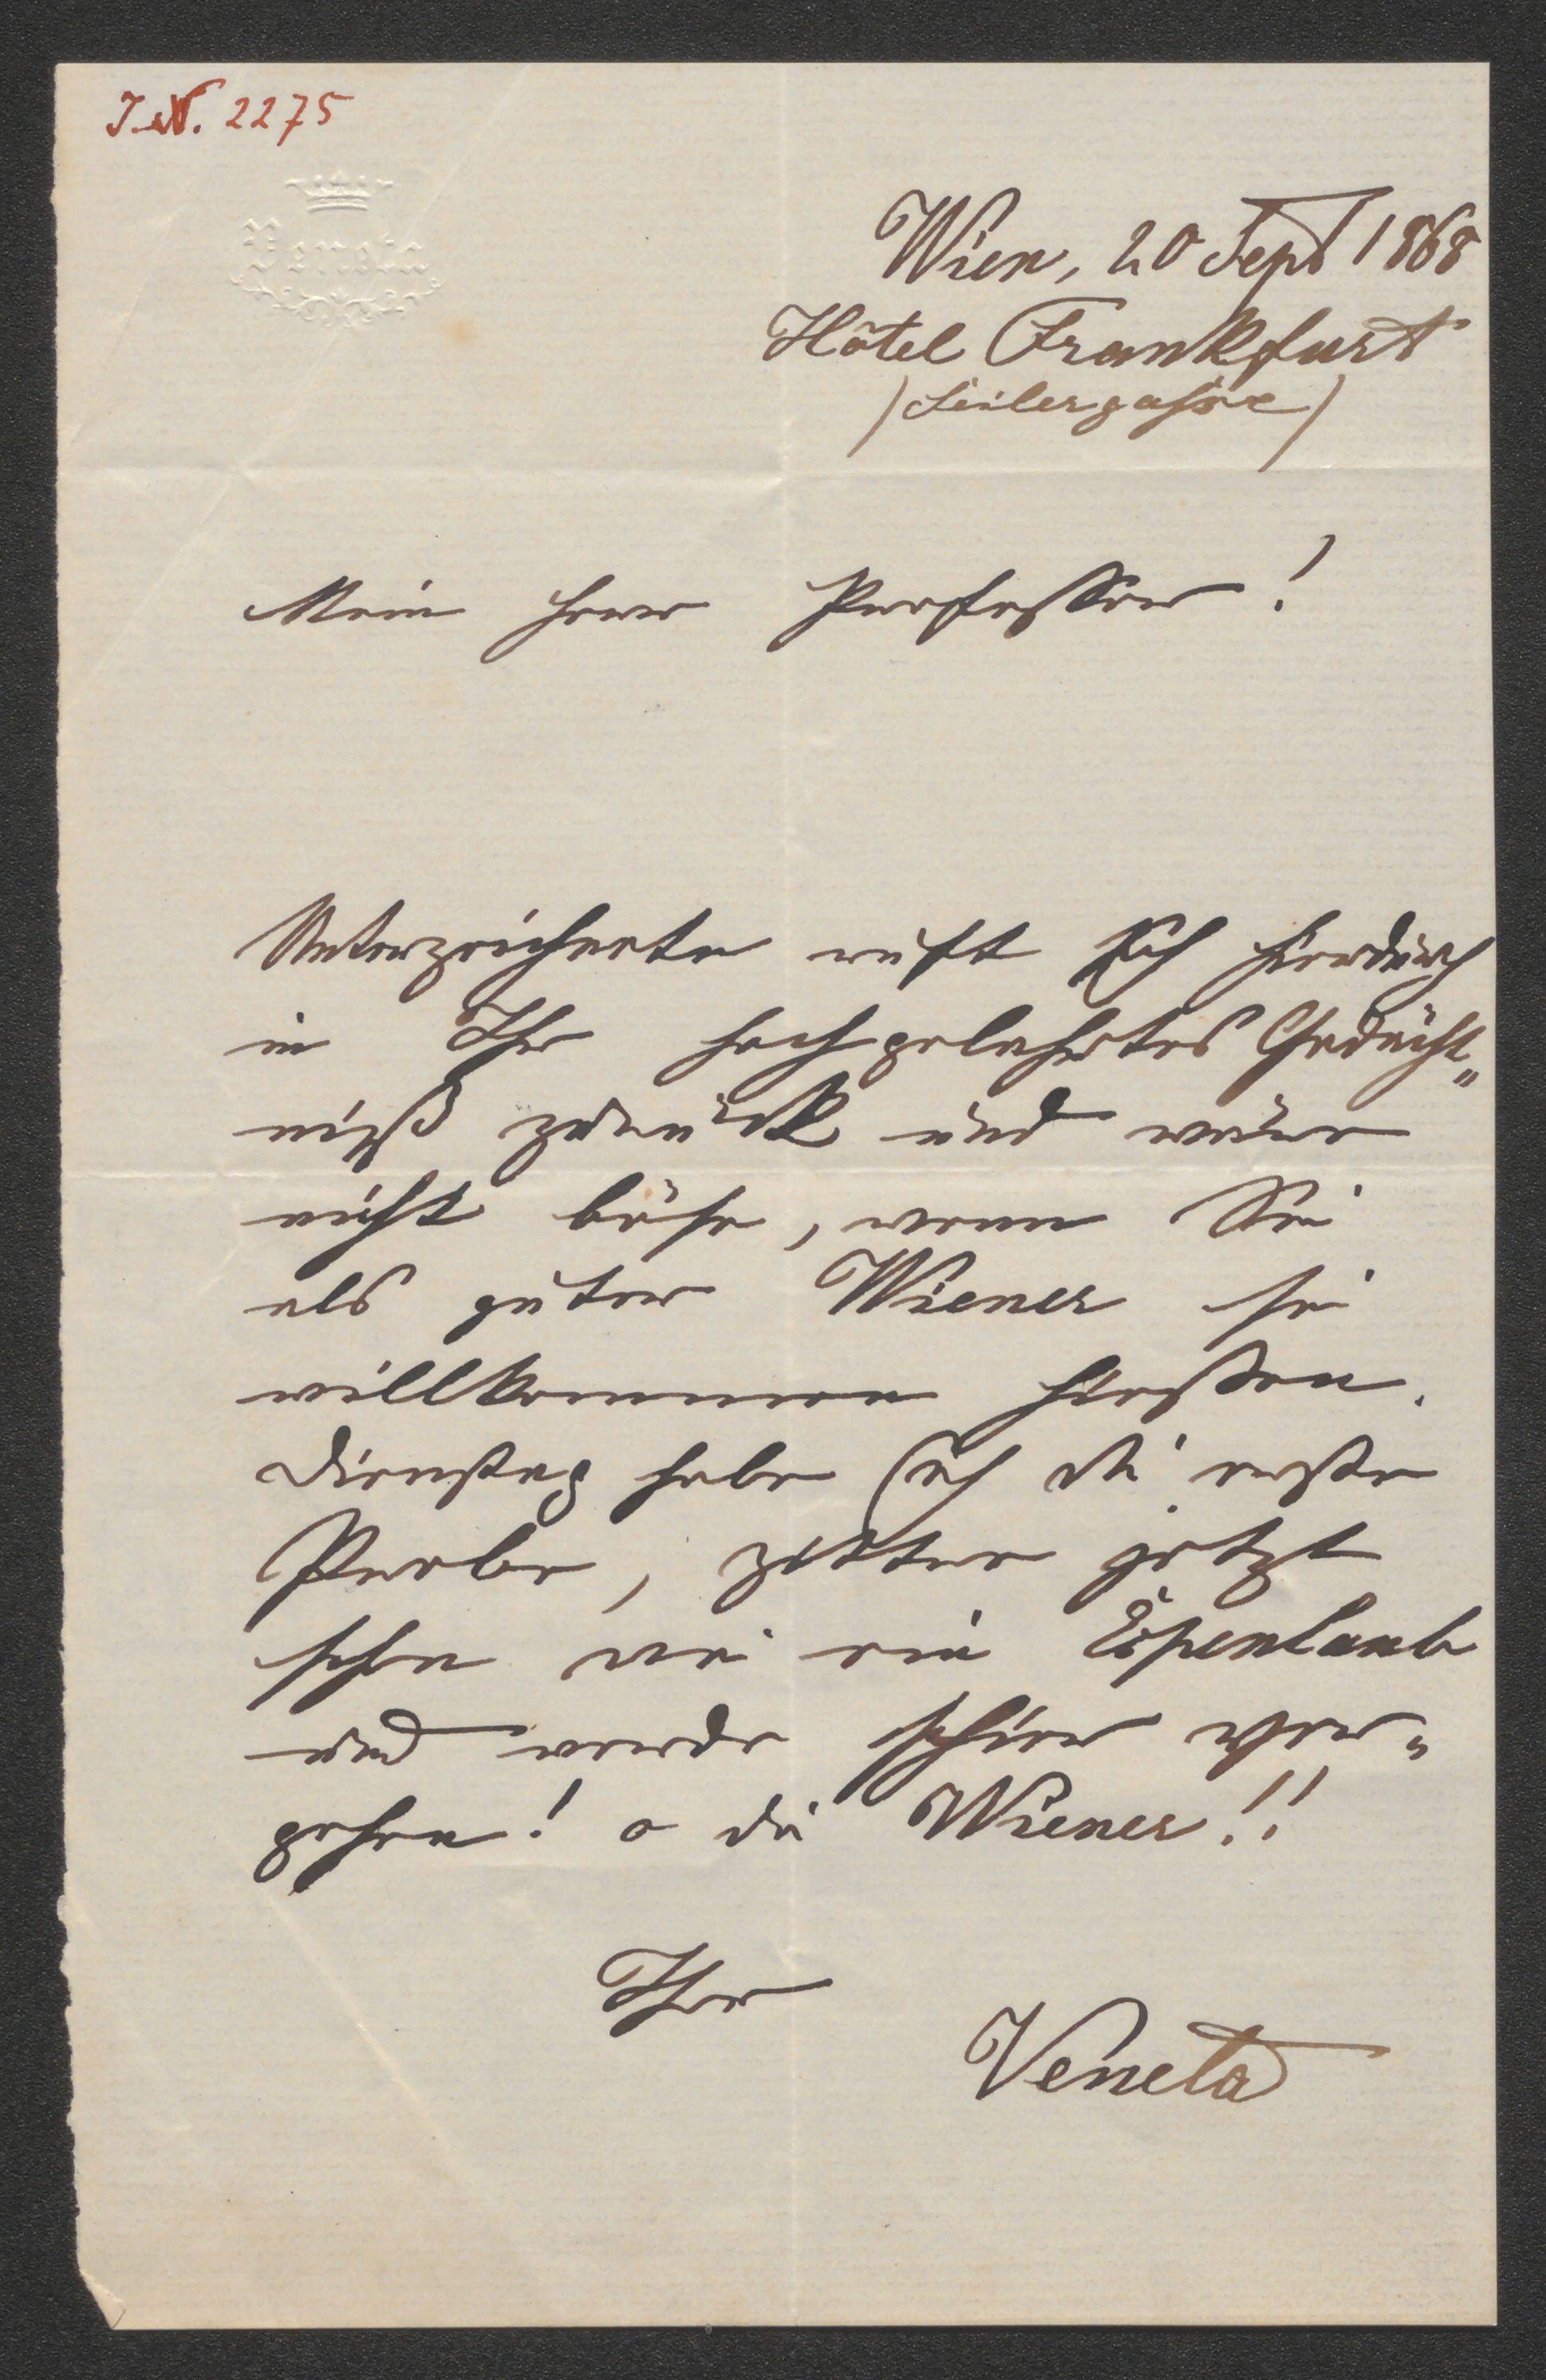 J.N. 2275
Veneta
Wien, 20 Sept 1868
Hôtel Frankfurt
(Seilergasse)
Mein Herr Professor!
Unterzeichnete ruft sich hierdurch
in Ihr hochgelahrtes Gedächt„
niß zurück und wäre
nicht böse, wenn Sie
als guter Wiener sie
willkommen hießen.
Dienstag habe ich die erste
Probe, zittre jetzt
schon wie ein Espenlaub
und werde schier ver„
gehen! o die Wiener!!
Ihre
Veneta